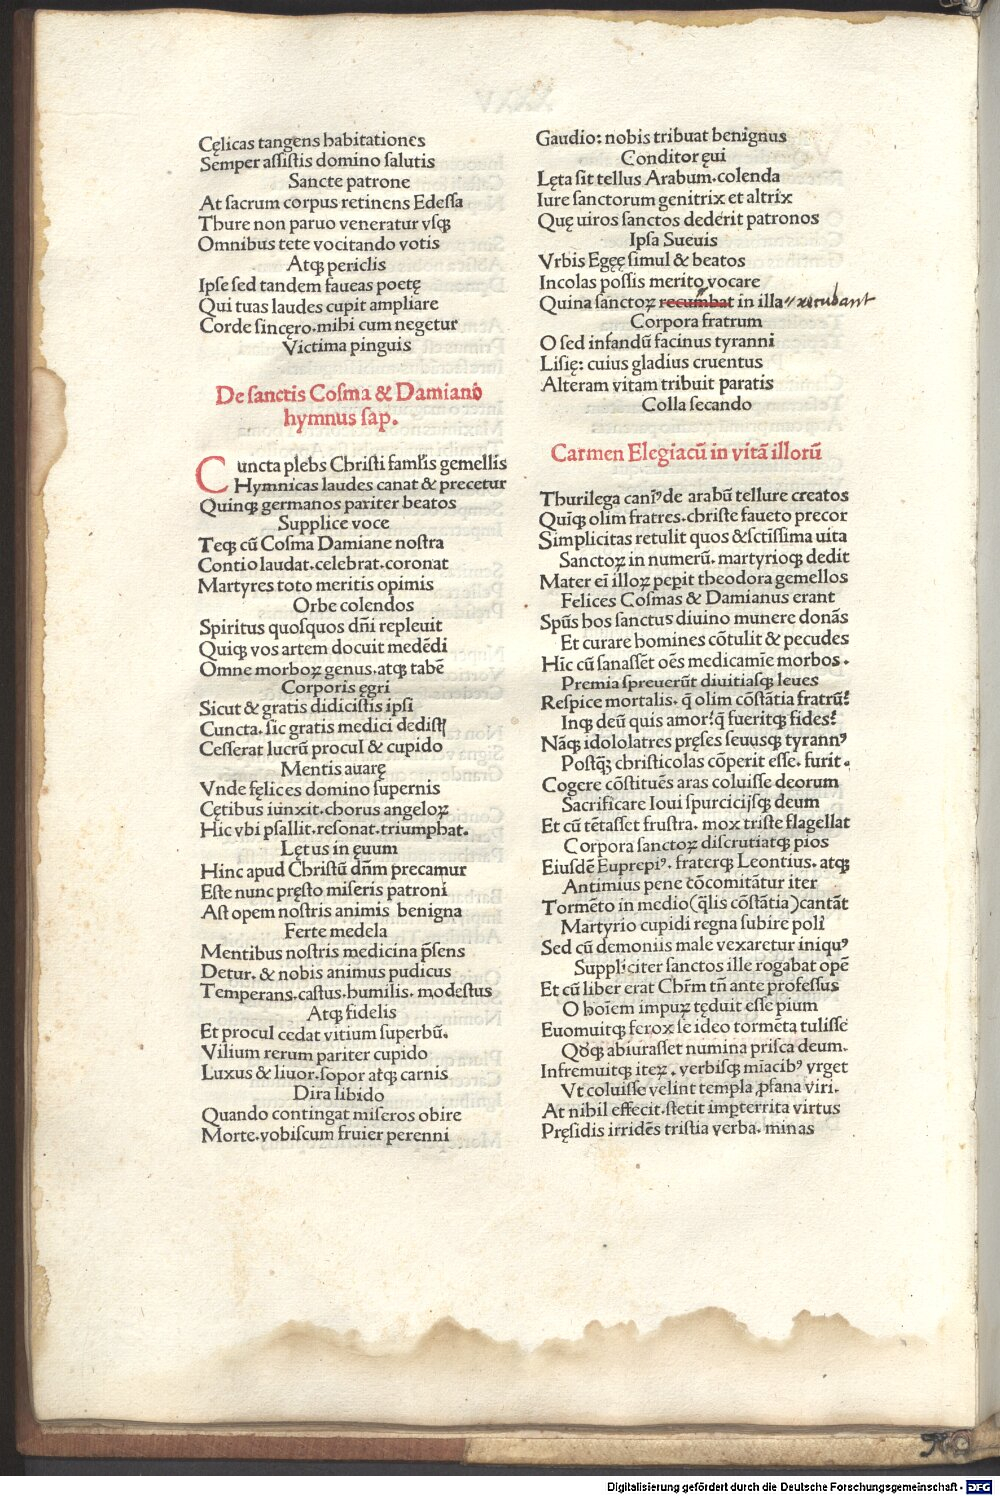 Cęlicas tangens habitationes
Semper assistis domino salutis
Sancte patrone
At sacrum corpus retinens Edessa
Thure non paruo veneratur vsqȝ
Omnibus tete vocitando votis
Atqȝ periclis
Ipse sed tandem faueas poetę
Qui tuas laudes cupit ampliare
Corde sincęro.mibi cum negetur
Victima pinguis
De sanctis Cosma & Damiano
hymnus sap.
Cuncta plebs Christi famlis gemellis
Hymnicas laudes canat & precetur
Quinqȝ germanos pariter beatos
Supplice voce
Teqȝ cū Cosma Damiane nostra
Contio laudat.celebrat.coronat
Martyres toto meritis opimis
Orbe colendos
Spiritus quosquos dñi repleuit
Quiqȝ vos artem docuit medēdi
Omne morboꝝ genus.atqȝ tabē
Corporis ęgri
Sicut & gratis didicistis ipsi
Cuncta.sic gratis medici dedistꝭ
Cesserat lucrū procul & cupido
Mentis auarę
Vnde fęlices domino supernis
Cętibus iunxit.chorus angeloꝝ
Hic vbi psallit.resonat.triumphat.
Lętus in ęuum
Hinc apud Christū dñm precamur
Este nunc pręsto miseris patroni
Ast opem nostris animis benigna
Ferte medela
Mentibus nostris medicina p̄sens
Detur.& nobis animus pudicus
Temperans.castus.humilis.modestus
Atqȝ fidelis
Et procul cedat vitium superbū.
Vilium rerum pariter cupido
Luxus & liuor.sopor atqȝ carnis
Dira libido
Quando contingat miseros obire
Morte.vobiscum fruier perenni
Gaudio: nobis tribuat benignus
Conditor ęui
Lęta sit tellus Arabum.colenda
Iure sanctorum genitrix et altrix
Quę uiros sanctos dederit patronos
Ipsa Sueuis
Vrbis Egęę simul & beatos
Incolas possis merito vocare
Quina sanctoꝝ recumbat in illa recubant
Corpora fratrum
O sed infandū facinus tyranni
Lisię: cuius gladius cruentus
Alteram vitam tribuit paratis
Colla secando
Carmen Elegiacū in vitā illorū
Thurilega canꝰ de arabū tellure creatos
Quīqȝ olim fratres.christe faueto precor
Simplicitas retulit quos &sctissima uita
Sanctoꝝ in numerū.martyrioqȝ dedit
Mater eī illoꝝ pepit theodora gemellos
Felices Cosmas & Damianus erant
Spūs hos sanctus diuino munere donās
Et curare homines cōtulit & pecudes
Hic cū sanassēt oēs medicamīe morbos.
Premia spreuerūt diuitiasqȝ leues
Respice mortalis.q̄ olim cōstātia fratrū?
Inqȝ deū quis amor?q̄ fueritqȝ fides?
Nāqȝ idololatres pręses seuusqȝ tyrannꝰ
Postq̄ȝ christicolas cōperit esse.furit.
Cogere cōstituēs aras coluisse deorum
Sacrificare Ioui spurcicijsqȝ deum
Et cū tētasset frustra.mox triste flagellat
Corpora sanctoꝝ discrutiatqȝ pios
Eiusdē Euprepiꝰ.fraterqȝ Leontius.atqȝ
Antimius pene cōcomitātur iter
Tormēto in medio(q̄lis cōstātia)cantāt
Martyrio cupidi regna subire poli
Sed cū demoniis male vexaretur iniquꝰ
Suppliciter sanctos ille rogabat opē
Et cū liber erat Chrm tñ ante professus
O hoīem impuꝝ tęduit esse pium
Euomuitqȝ ferox se ideo tormēta tulisse
Qđqȝ abiurasset numina prisca deum.
Infremuitqȝ iteꝝ.verbisqȝ mīacibꝰ vrget
Vt coluisse velint templa ꝓfana viri.
At nibil effecit.stetit imꝑterrita virtus
Pręsidis irridēs tristia verba.minas
Digitalisierung gefördert durch die Deutsche Forschungsgemeinschaft - DFG